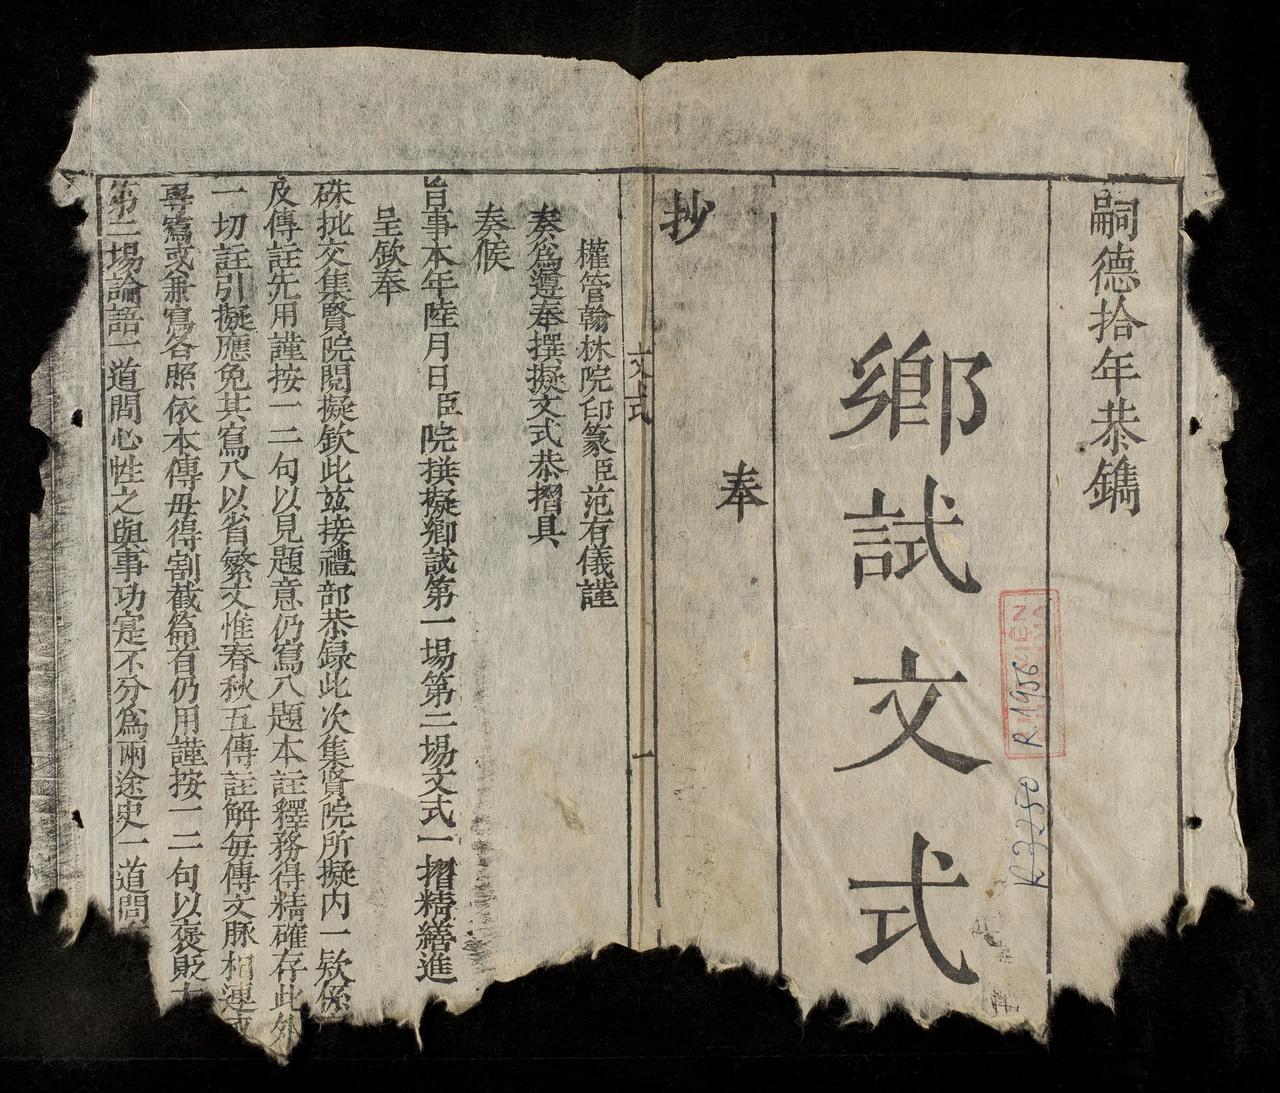 嗣德拾年恭鐫
鄉試文式
奉
抄
文式 一
權管翰林院印篆臣范有儀謹
奏爲遵奉撰擬文式恭摺具
奏候
旨事本年陸月日臣院撰擬鄉試第一場第二場文式一摺精繕進
呈欽奉
硃批交集賢院閱擬欽此茲接禮部恭録此次集賢院所擬内一欵係
及傳註先用謹按一二句以見題意仍寫入題本註釋務得精確存此外
一切註引擬應免其寫入以省繁文惟春秋五傳註解每傳文脉相連或
專寫或兼寫各照依本傳毋得割截篇首仍用謹按一二句以褒貶大
第二場論語一道問心性之與事功寔不分爲兩途史一道問
R.1956
R.2250